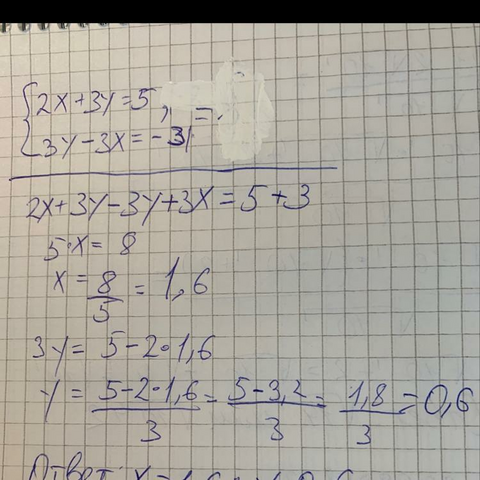 2x+3y=5,
3y-3x=-3
2x+3y-3y+3x=5+3
5·x=8
x=8/5=1,6
3y=5-2·1,6
y=(5-2·1,6)/3=(5-3,2)/3=1,8/3=0,6
Ответ: x=1,6